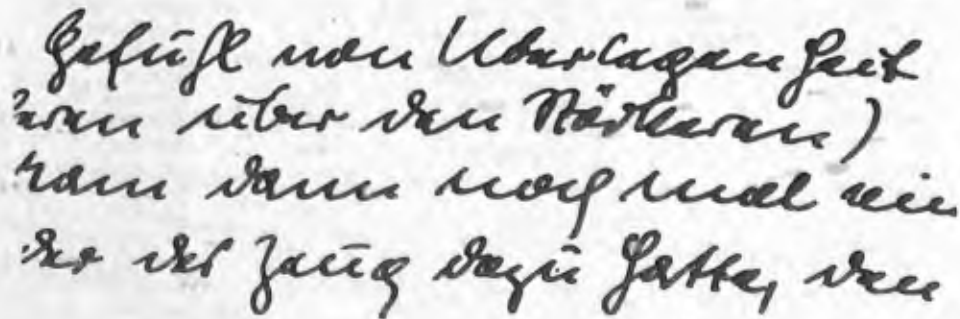 Gefühl von Überlegenheit
eren über den Stärkeren)
kam dann noch mal ein
der das Zeug dazu hatte, den